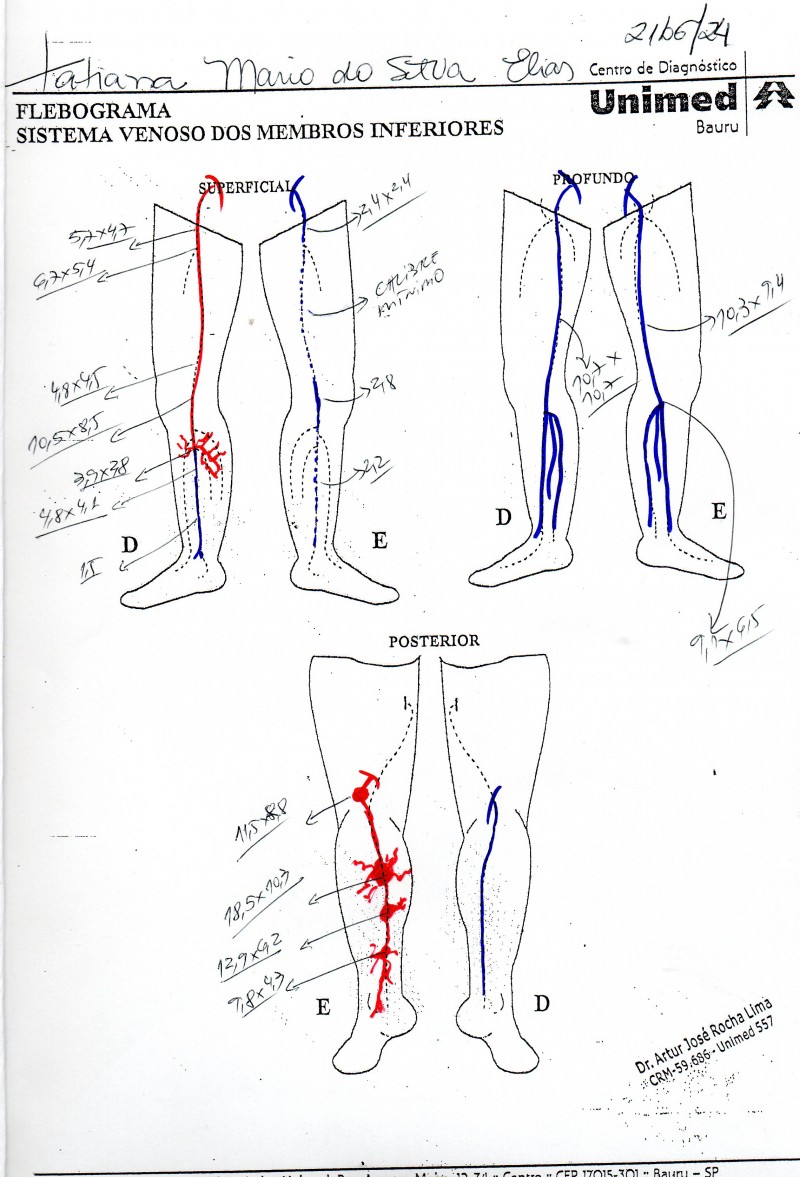 21/06/24
Tatiana Mario do Silva Elias
Centro de Diagnóstico
Unimed
Bauru
FLEBOGRAMA
SISTEMA VENOSO DOS MEMBROS INFERIORES
SUPERFICIAL
PROFUNDO
5,7x4,7
6,7x5,4
4,8x4,5
10,5x8,5
3,9x3,8
4,8x4,1
1,5
D
2,4x2,4
CALIBRE
MÍNIMO
2,8
2,2
E
10,7x
10,7
10,3x9,4
D
E
POSTERIOR
11,5x8,8
18,5x10,7
12,9x9,2
9,8x4,7
E
D
Dr. Artur José Rocha Lima
CRM-59.686 - Unimed 557
Centro :: CEP 17015-301 :: Bauru – SP